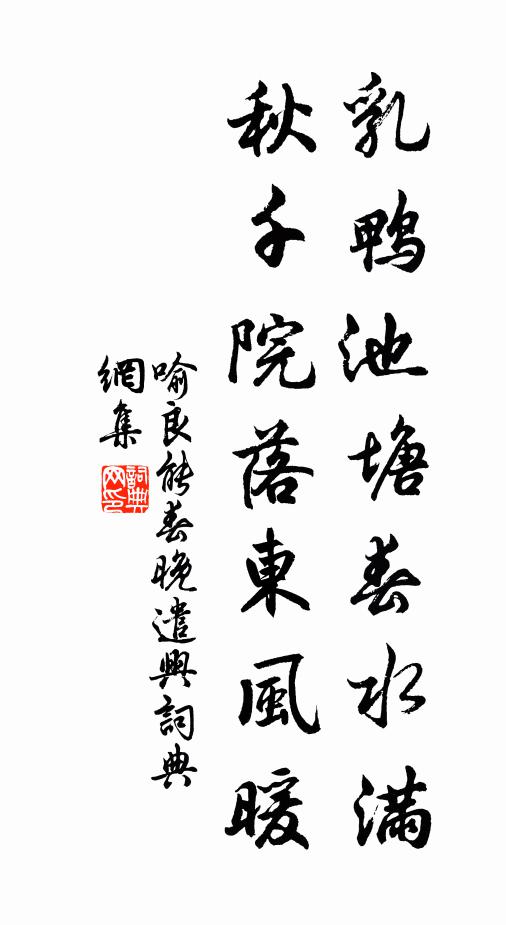 乳鴨池塘春水滿
秋千院落東風暖
喻良能春晚遣興詞典
網集
詞典網印